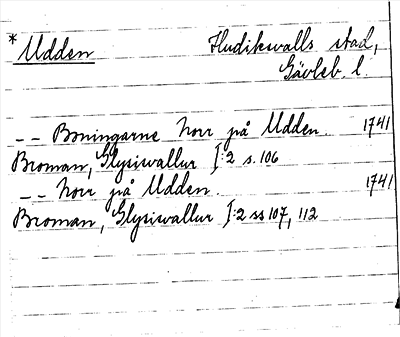 * Udden Hudiksvalls stad,
Gävleb. l.
-- Boningarne Norr på Udden. 1741
Broman, Glysisvallur I:2 s. 106
-- Norr på Udden. 1741
Broman, Glysisvallur I:2 ss 107, 112